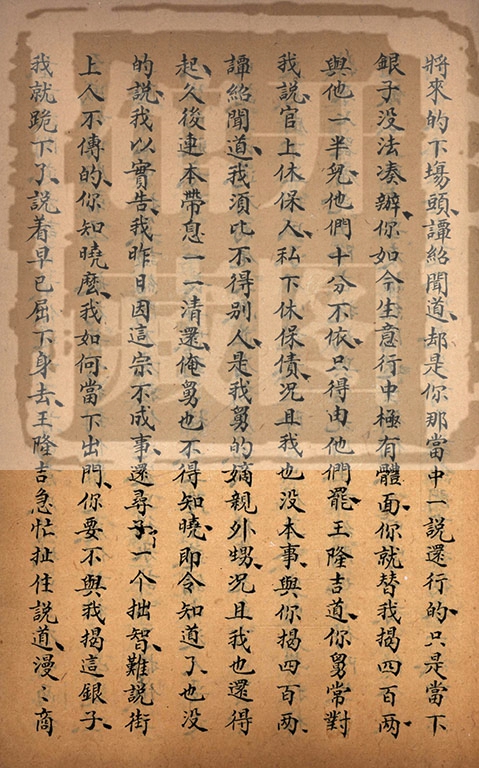 將來的下塲頭譚紹聞道却是你那當中一說還行的只是當下
銀子没法凑辦你如今生意行中極有體面你就替我揭四百两
與他一半兒他們十分不依只得由他們罷王隆吉道你舅常對
我說官上休保人私下休保債况且我也没本事與你揭四百两
譚紹聞道我須比不得别人是我舅的嫡親外甥况且我也還得
起久後連本帶息一一清還俺舅也不得知曉即令知道了也没
的說我以實告我昨日因這宗不成事還尋了一个拙智難說街
上人不傳的你知曉麽我如何當下出門你要不與我揭這銀子
我就跪下了說着早已屈下身去王隆吉急忙扯住說道漫〻商